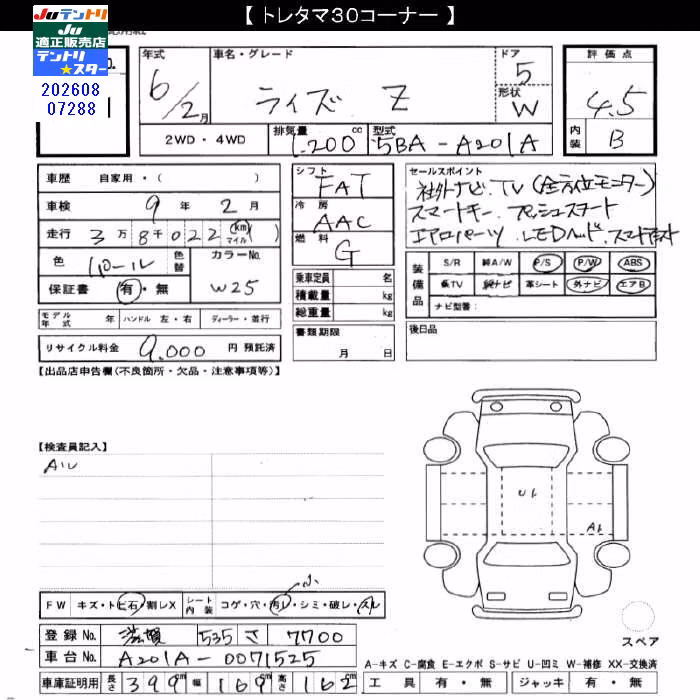 【 トレタマ30コーナー 】
Juテントリ
Ju
適正販売店
テントリ
★スター
202608
07288
年式 車名・グレード ドア 評価点
6/2月 ライズ Z 5 4.5
形状 W
内装 B
2WD・4WD 排気量 1.200 cc 型式 5BA-A201A
車歴 自家用・( )
車検 9年 2月
走行 3万8千022 km マイル ( )
色 パール 色替 カラーNo.
保証書 有・無 W25
モデル年式 年 ハンドル 左・右 ディーラー・並行
リサイクル料金 9,000 円 預託済
シフト FAT
冷房 AAC
燃料 G
乗車定員 名
積載量 kg
総重量 kg
書類期限
月 日
セールスポイント
社外ナビ. TV (全方位モニター)
スマートキー. プッシュスタート
エアロパーツ. LEDヘッド.
装備品 S/R 純A/W P/S P/W ABS
純TV 純ナビ 革シート 外ナビ エアB
ナビ型番:
後日品
【出品店申告欄(不良箇所・欠品・注意事項等)】
【検査員記入】
A・U
U1
A1
FW キズ・トビ石・割レX シート内装 コゲ・穴・汚レ・シミ・破レ・スレ
小
登録No. 滋賀 535 さ 7700
車台No. A201A-0071525
車庫証明用 長さ 399 幅 169 高さ 162
スペア
A-キズ C-腐食 E-エクボ S-サビ U-凹ミ W-補修 XX-交換済
工具 有・無 ジャッキ 有・無